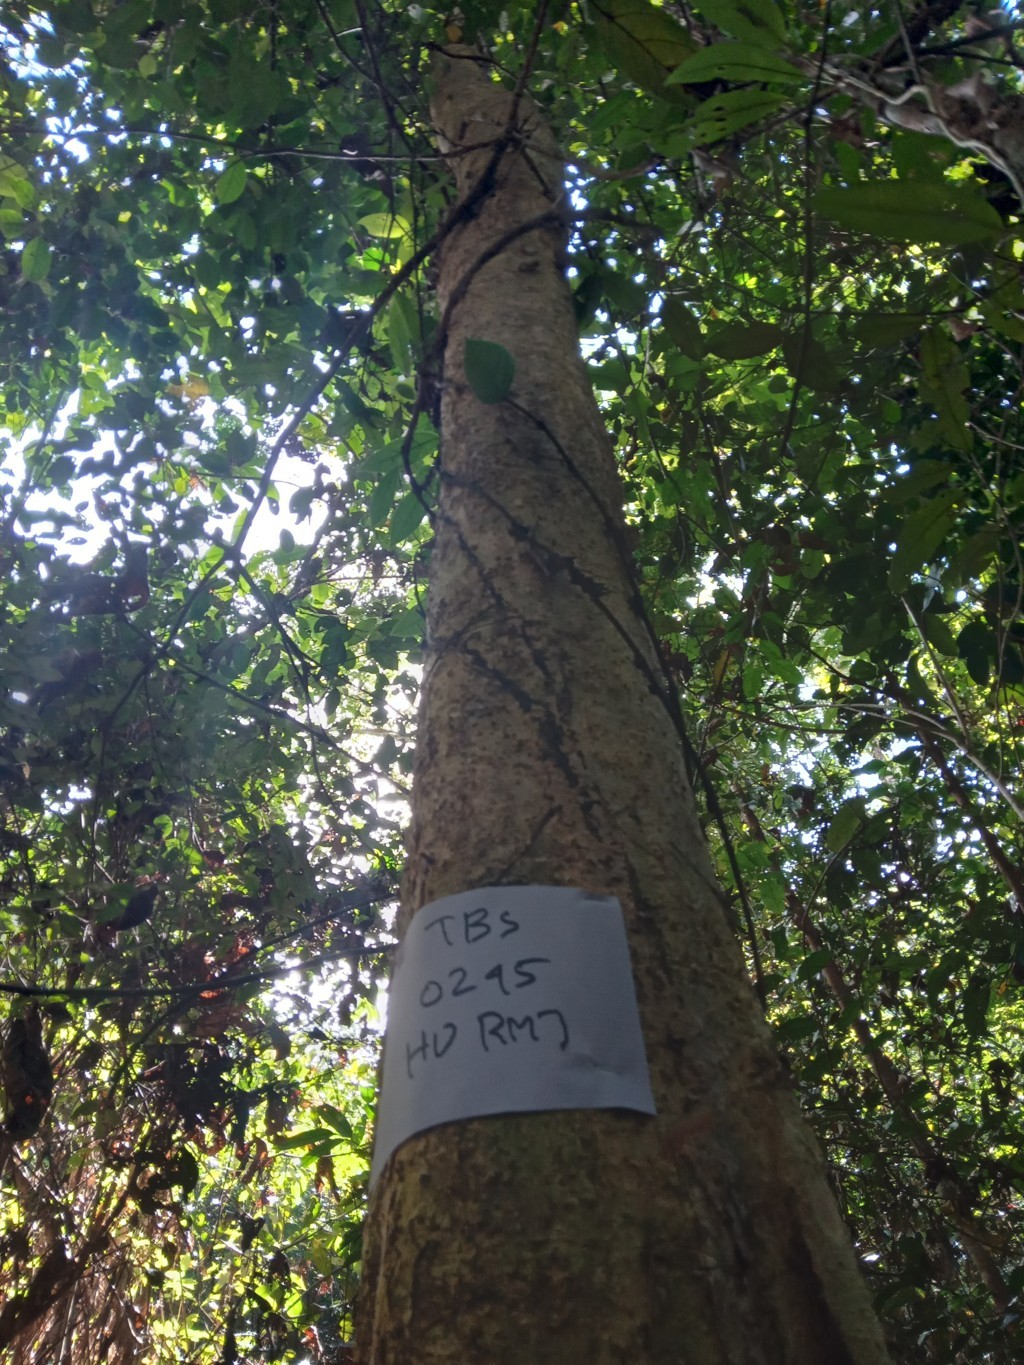 TBS
0295
HU RM7